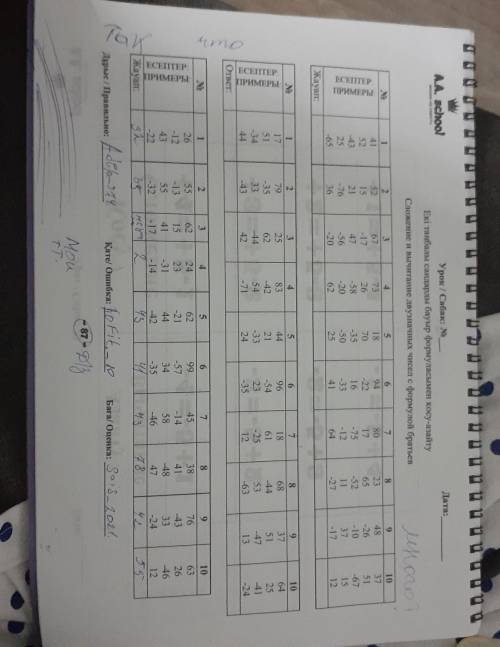 A.A. school
Урок / Сабақ: №___ Дата: ______
Екі таңбалы сандарды бауыр формуласымен қосу-азайту
Сложение и вычитание двузначных чисел с формулой братьев
№ 1 2 3 4 5 6 7 8 9 10
ЕСЕПТЕР: 41 52 67 73 18 94 80 23 48 37
ПРИМЕРЫ 52 15 -17 26 70 -22 17 65 -26 51
-43 21 47 -58 -35 16 -75 -52 -10 -67
25 -76 -56 -20 -50 -33 -12 11 37 15
-65 36 -20 62 25 41 64 -27 -17 12
Жауап:
№ 1 2 3 4 5 6 7 8 9 10
ЕСЕПТЕР: 17 79 25 83 44 96 18 68 37 64
ПРИМЕРЫ 51 -35 62 -42 21 -54 61 -44 51 25
-34 33 -44 -54 -33 23 -25 53 -47 -41
44 -43 42 -71 24 -35 12 -63 13 -24
Ответ:
№ 1 2 3 4 5 6 7 8 9 10
ЕСЕПТЕР: 26 55 62 24 62 99 45 38 76 63
ПРИМЕРЫ -12 -13 15 23 -21 -57 -14 41 -43 26
43 55 41 -31 44 34 58 -48 33 -46
-22 -32 -17 -14 -42 -35 -46 47 -24 12
Жауап: 2 43 41 43 78 42 55
Дұрыс / Правильно: Қате/ Ошибка: Баға/ Оценка:
- 87 - Д/з